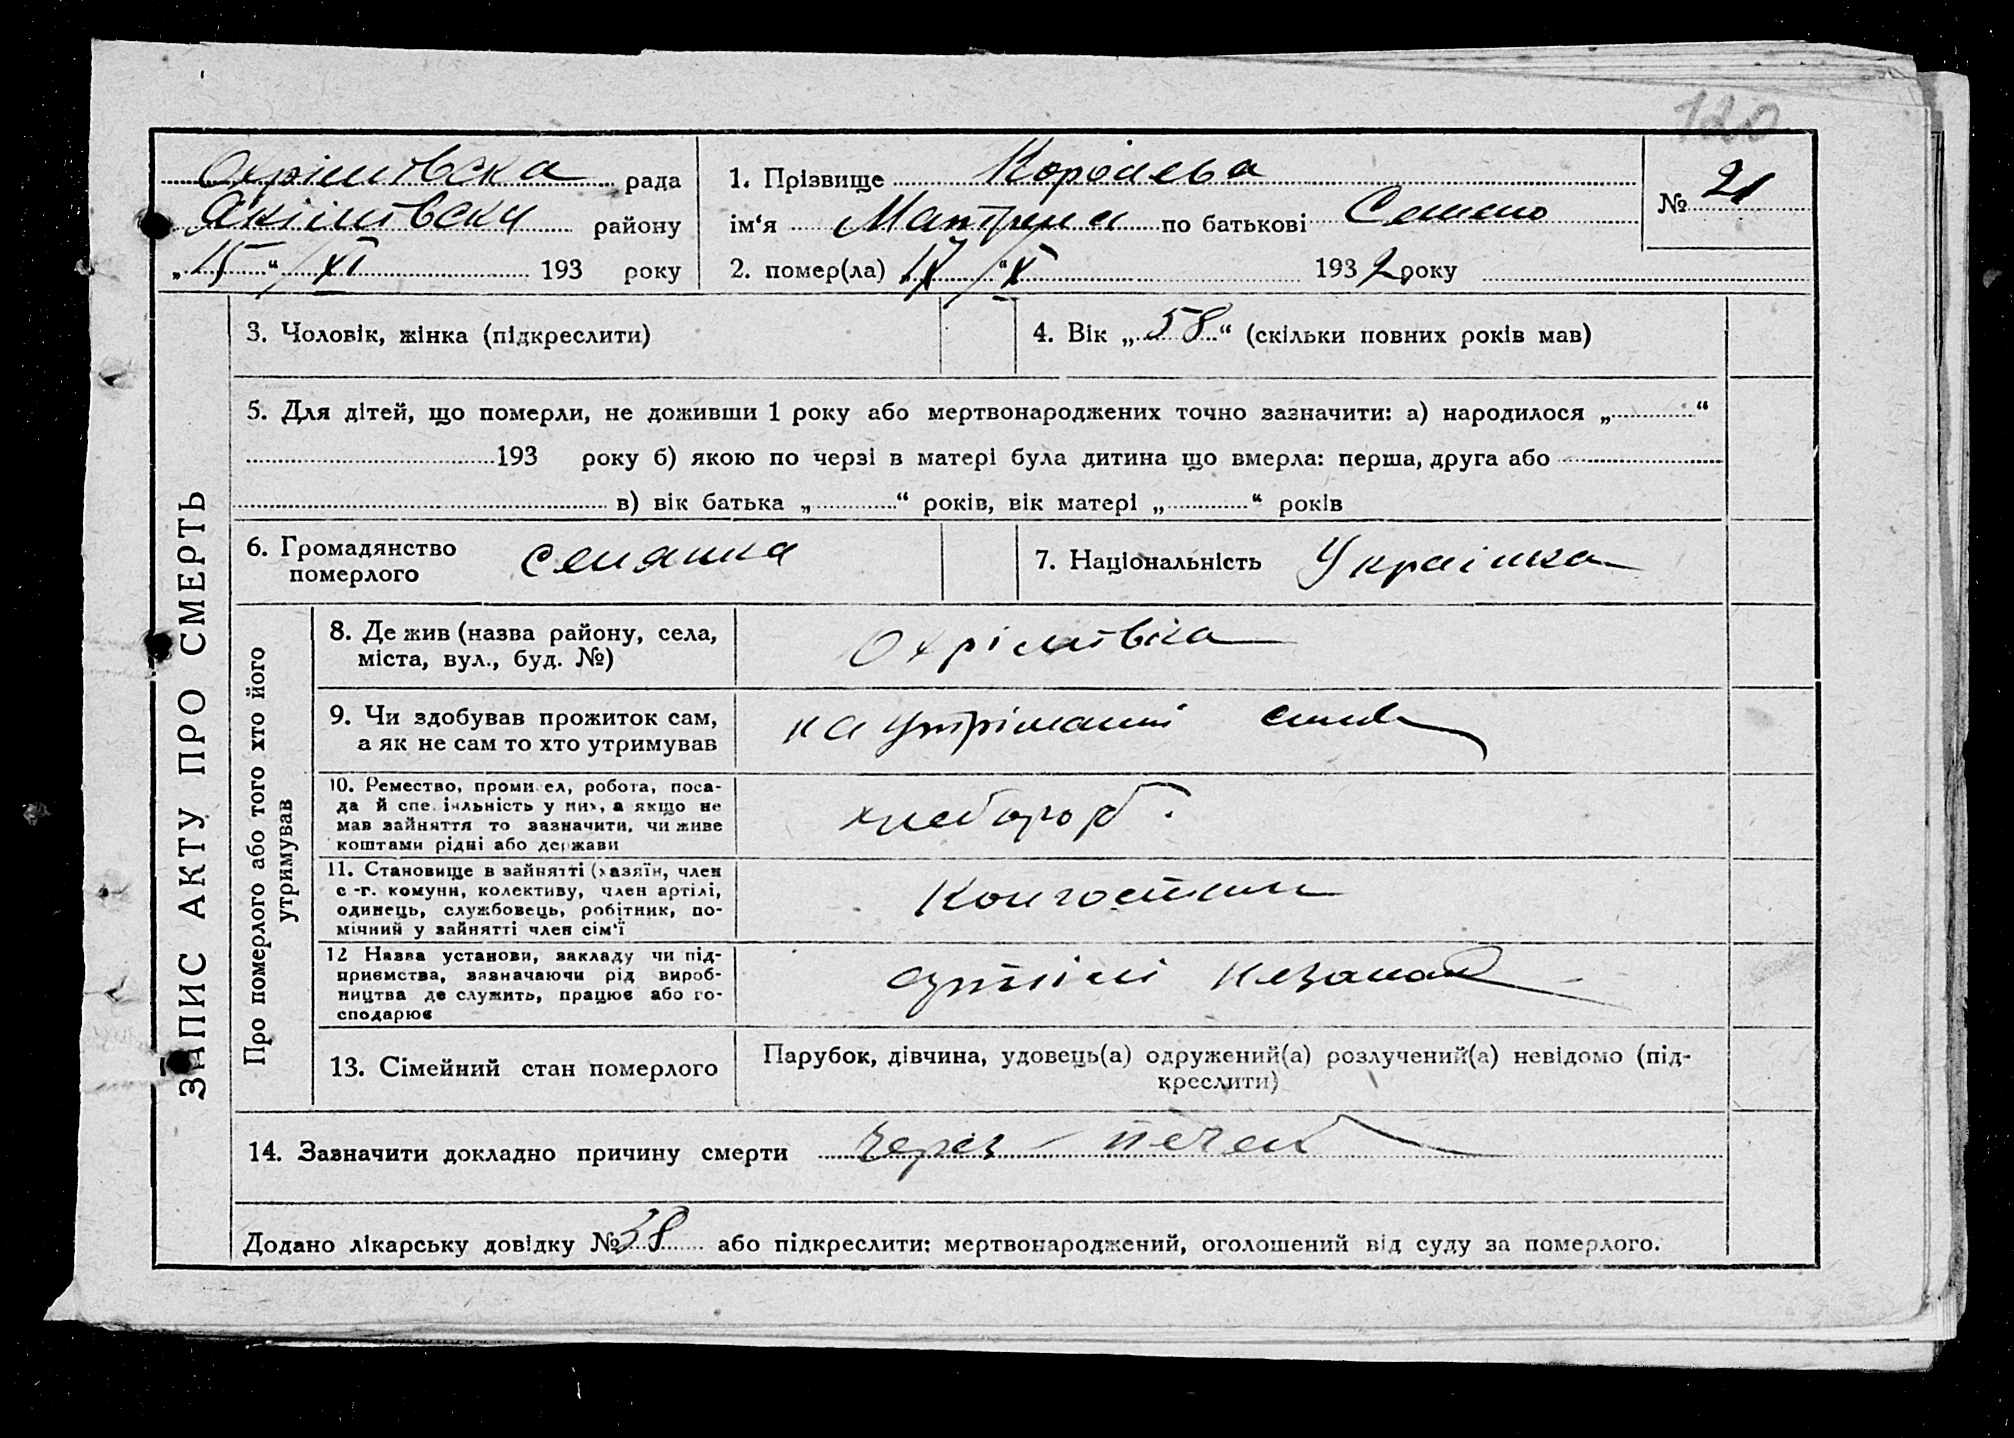 120
Охрімовска рада
Якімовски району
„15“/XI 193 року
1. Прізвище Королева
ім‘я Матрена по батькові Семено
2. помер(ла) „17“/X 1932 року
№ 21
ЗАПИС АКТУ ПРО СМЕРТЬ
3. Чоловік, жінка (підкреслити)
4. Вік „58“ (скільки повних років мав)
5. Для дітей, що померли, не доживши 1 року або мертвонароджених точно зазначити: а) народилося „ “
193 року б) якою по черзі в матері була дитина що вмерла: перша, друга або
в) вік батька „ “ років, вік матері „ “ років
6. Громадянство
померлого
селянка
7. Національність Українка
Про померлого або того хто його
утримував
8. Де жив (назва району, села,
міста, вул., буд. №)
Охрімовка
9. Чи здобував прожиток сам,
а як не сам то хто утримував
на утріманні сина
10. Ремество, промисел, робота, поса-
да й спеціяльність у них, а якщо не
мав зайняття то зазначити, чи живе
коштами рідні або держави
хлебороб.
11. Становище в зайнятті (хазяїн, член
с.-г. комуни, колективу, член артілі,
одинець, службовець, робітник, по-
мічний у зайнятті член сім‘ї
12 Назва установи, закладу чи під-
приємства, зазначаючи рід вироб-
ництва де служить, працює або го-
сподарює
артілі Незамож
13. Сімейний стан померлого
Парубок, дівчина, удовець(а) одружений(а) розлучений(а) невідомо (під-
креслити)
14. Зазначити докладно причину смерти через печен
Додано лікарську довідку № 38 або підкреслити: мертвонароджений, оголошений від суду за померлого.